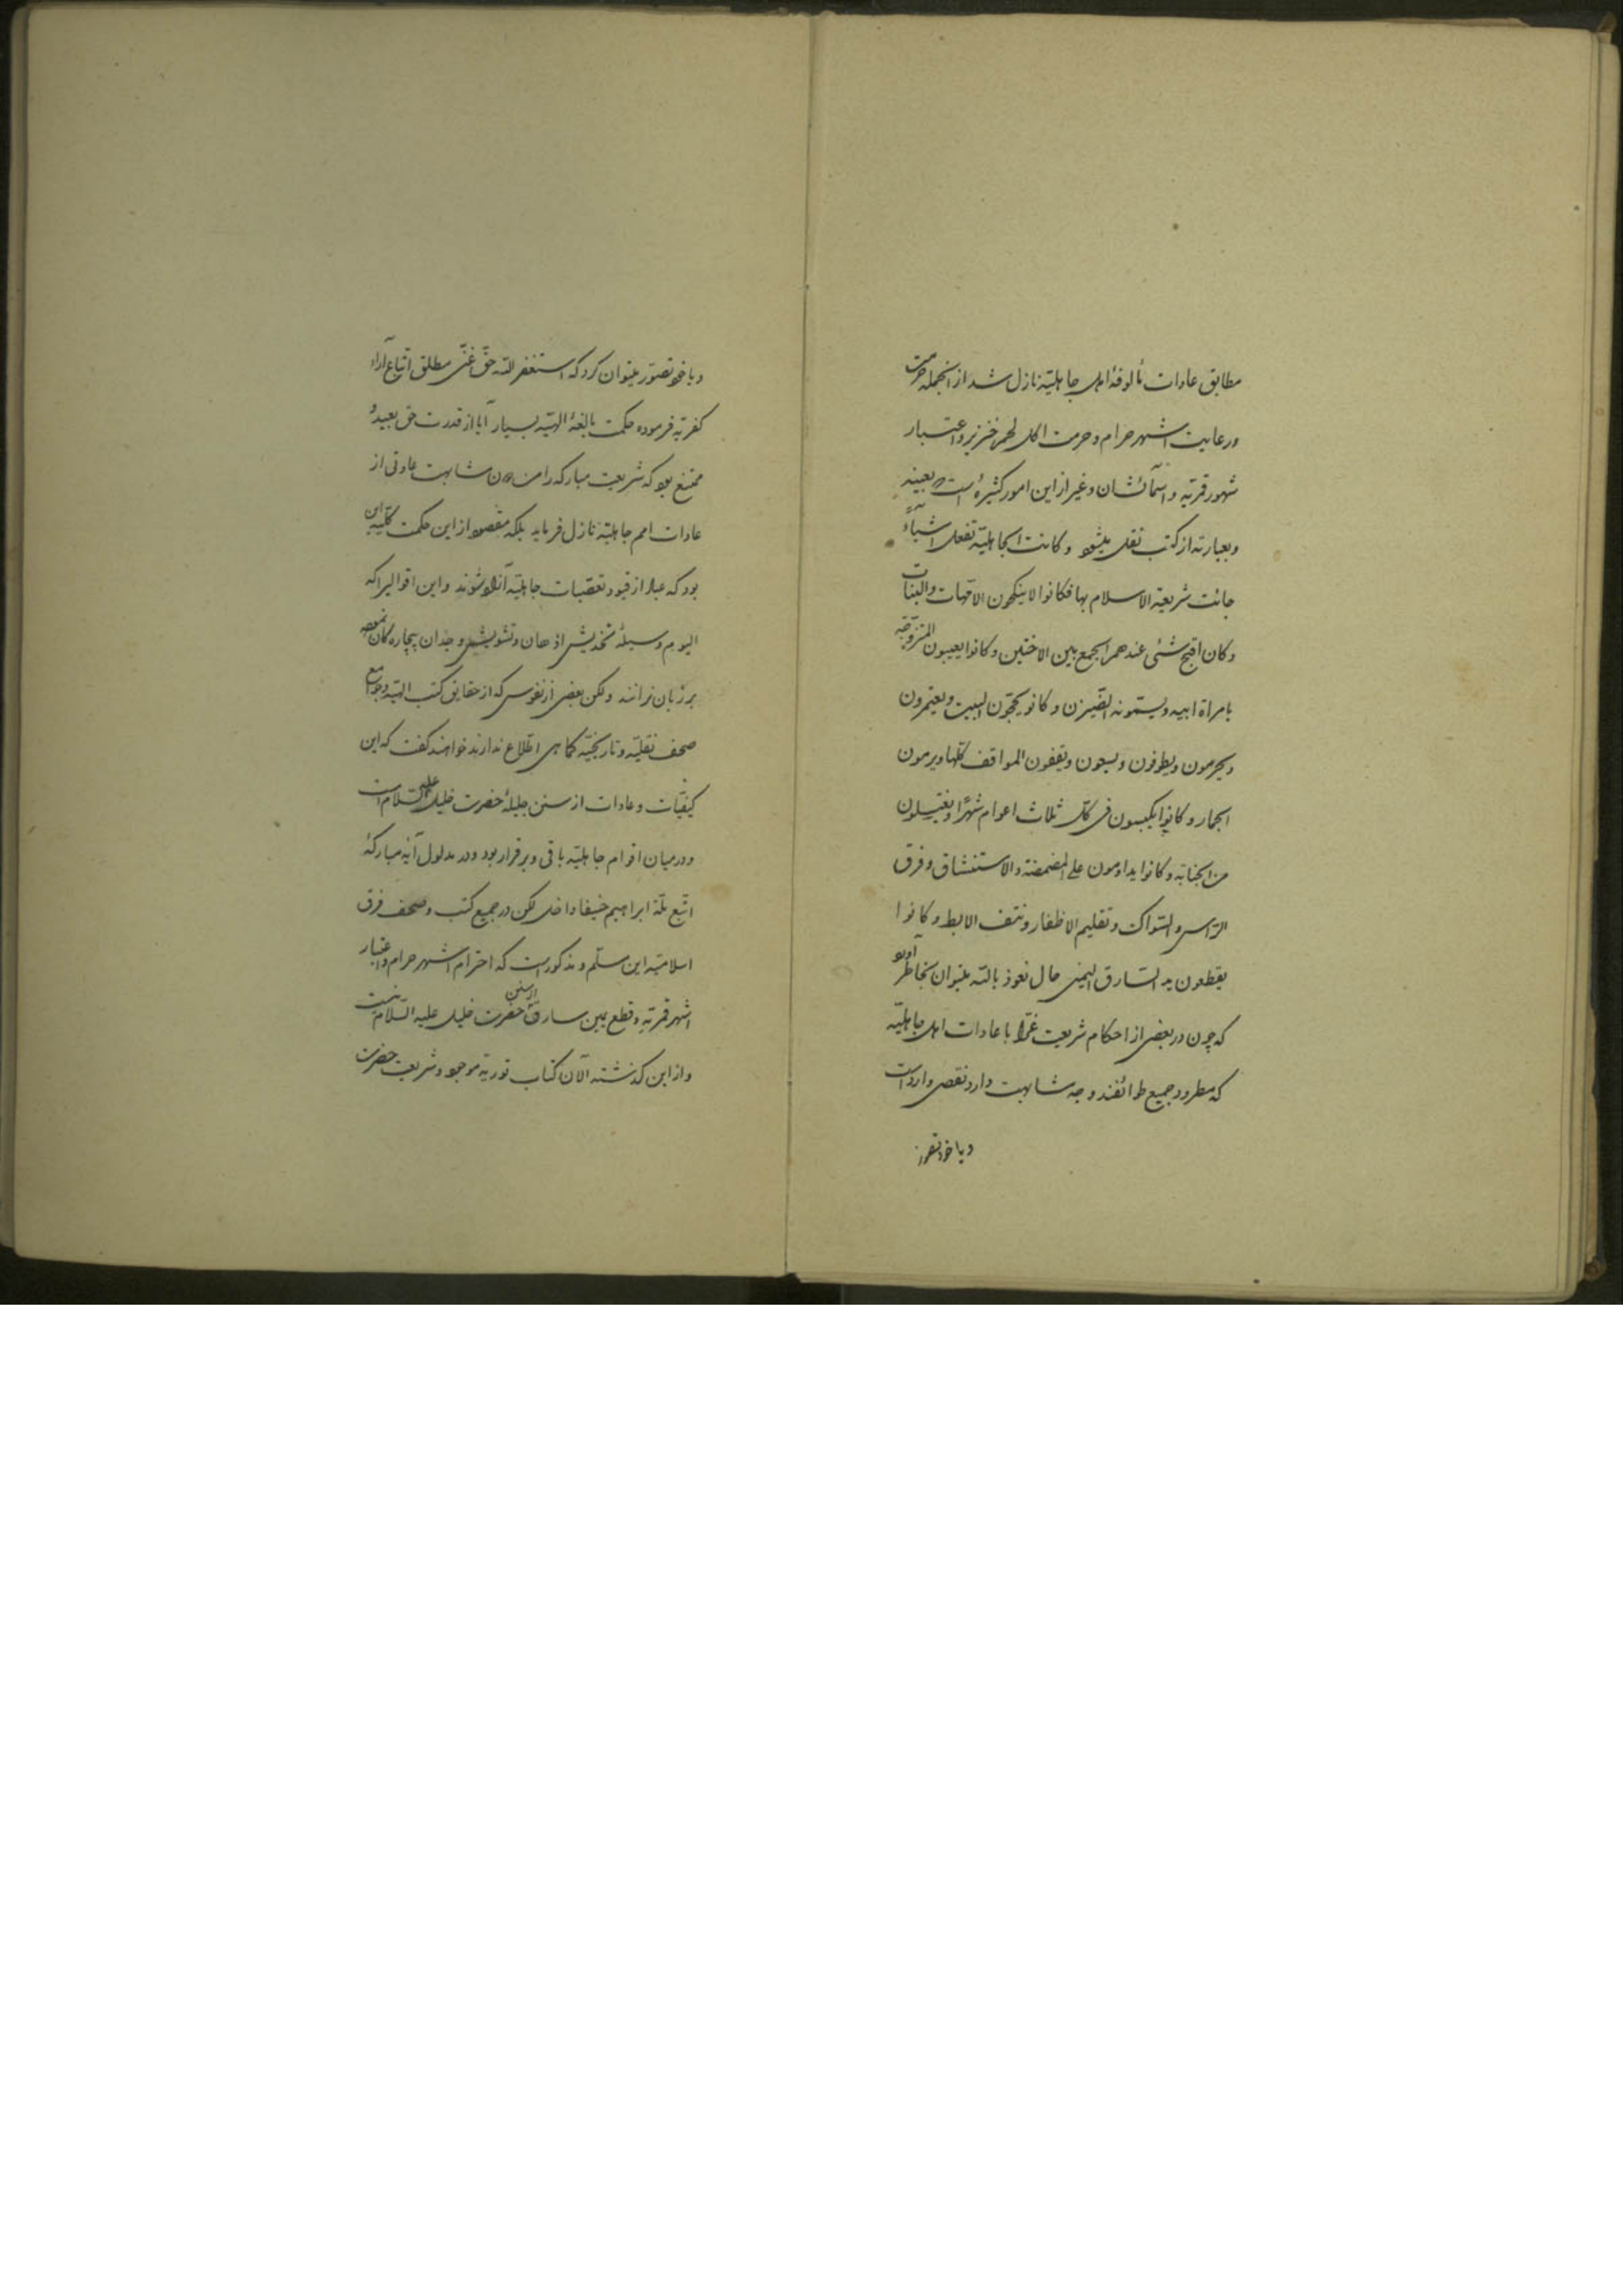 مطابق عادات مألوفهٔ اهل جاهلیّه نازل شد از آنجمله حرمت
و رعایت اشهر حرام و حرمت اکل لحم خنزیر و اعتبار
شهور قمریّه و اسمآئشان و غیر از این امور کثیره‌ئیست که بعینه
و بعبارته از کتب نقل میشود و کانت الجاهلیّة تفعل اشیآء
جائت شریعة الاسلام بها فکانوا لا ینکحون الامّهات و البنات
و کان اقبح شئی عندهم الجمع بین الاختین و کانوا یعیبون المتزوّجة
بامراة ابیه و یسمّونه الضّیزن و کانوا یحجّون البیت و یعتمرون
و یحرمون و یطوفون و یسعون و یقفون المواقف کلّها و یرمون
الجمار و کانوا یکبسون فی کلّ ثلاث اعوام شهراً و یغتسلون
من الجنابة و کانوا یداومون علی المضمضة و الاستنشاق و فرق
الرّاس و السّواک و تقلیم الاظفار و نتف الابط و کانوا
یقطعون ید السّارق الیمنی حال نعوذ بالله میتوان بخاطر آورد
که چون در بعضی از احکام شریعت غرّا با عادات اهل جاهلیّه
که مطرود جمیع طوائفند وجه مشابهت دارد نقصی وارد است
و با خود تصوّر
و با خود تصوّر میتوان کرد که استغفر الله حقّ غنی مطلق اتّباع آراء
کفریّه فرموده حکمت بالغهٔ الهیّه بسیار آیا از قدرت حق بعید و
ممتنع بود که شریعت مبارکه را من دون مشابهت عادتی از
عادات امم جاهلیّه نازل فرماید بلکه مقصود از این حکمت کلّیه این
بود که عباد از قیود تعصّبات جاهلیّه آزاد شوند و این اقوالیرا که
الیوم وسیلهٔ تخدیش اذهان و تشویش وجدان بیچاره‌گان نموده
بر زبان نرانند ولکن بعضی از نفوس که از حقایق کتب الهیّه و جوامع
صحف نقلیّه و تاریخیّه کما هی اطّلاع ندارند خواهند گفت که این
کیفیّات و عادات از سنن جلیلهٔ حضرت خلیل علیه السّلام است
و در میان اقوام جاهلیّه باقی و برقرار بود و در مدلول آیهٔ مبارکهٔ
اتّبع ملّة ابراهیم حنیفا داخل لکن در جمیع کتب و صحف فرق
اسلامیّه این مسلّم و مذکور است که احترام اشهر حرام و اعتبار
اشهر قمریّه و قطع یمین سارق از سنن حضرت خلیل علیه السّلام نیست
و از این گذشته الآن کتاب توریة موجود و شریعت حضرت